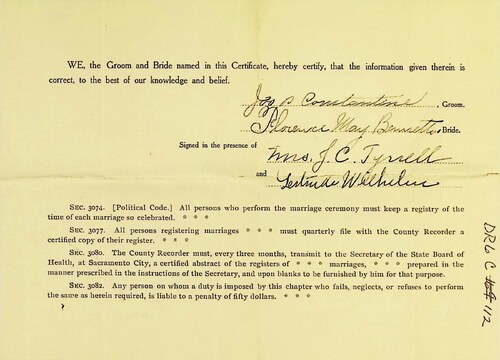 WE, the Groom and Bride named in this Certificate, hereby certify, that the information given therein is
correct, to the best of our knowledge and belief.
Constantine, Groom.
Florence May Bennetto Bride.
Signed in the presence of
Mrs. J. C. Tyrrell
and
Gertrude Wilhelm
SEC. 3074. [Political Code.] All persons who perform the marriage ceremony must keep a registry of the
time of each marriage so celebrated. * * *
SEC. 3077. All persons registering marriages * * * must quarterly file with the County Recorder a
certified copy of their register. * * *
SEC. 3080. The County Recorder must, every three months, transmit to the Secretary of the State Board of
Health, at Sacramento City, a certified abstract of the registers of * * * marriages, * * * prepared in the
manner prescribed in the instructions of the Secretary, and upon blanks to be furnished by him for that purpose.
SEC. 3082. Any person on whom a duty is imposed by this chapter who fails, neglects, or refuses to perform
the same as herein required, is liable to a penalty of fifty dollars. * * *
DR6 C 112